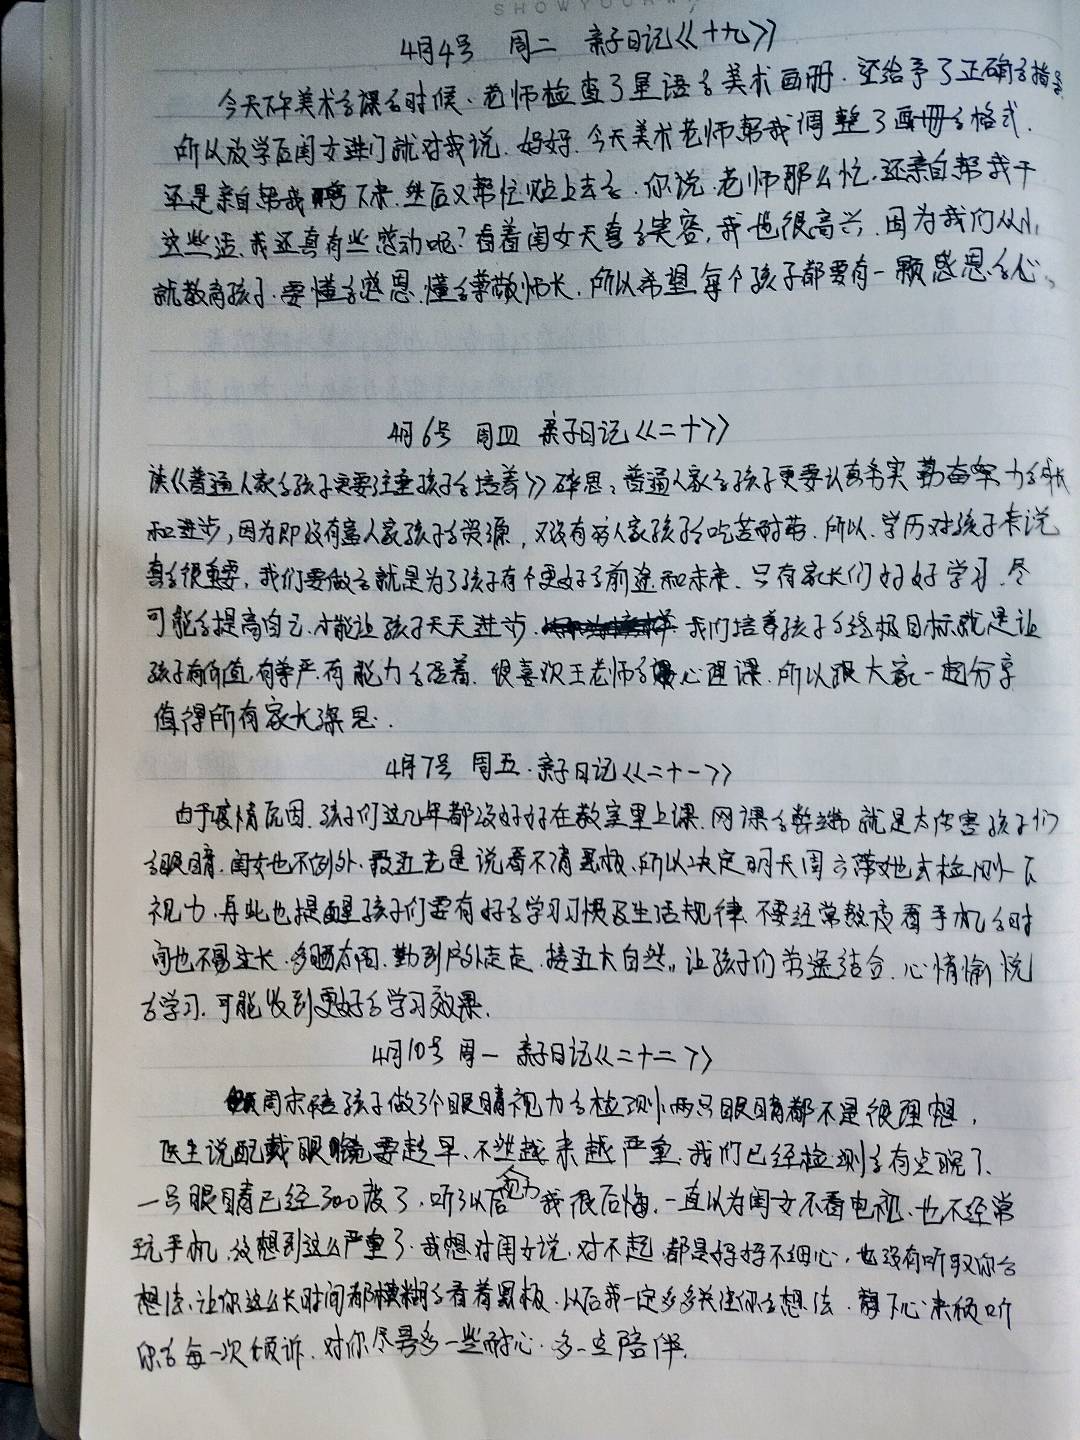 SHOWYOUR
4月4号 周二 亲子日记《十九》
今天下午美术的课的时候、老师检查了星语的美术画册.还给予了正确的指
所以放学后闺女进门就对我说.妈妈.今天美术老师帮我调整了画册的格式.
还是亲自帮我撕下来.然后又帮忙贴上去的.你说.老师那么忙.还亲自帮我干
这些活.我还真有些感动呢?看着闺女天真的笑容,我也很高兴.因为我们从小
就教育孩子.要懂的感恩.懂的尊敬师长.所以希望每个孩子都要有一颗感恩的心。
4月6号 周四 亲子日记《二十》
读《普通人家的孩子更要注重孩子的培养》碎思:普通人家的孩子更要认真务实 勤奋努力的成长
和进步,因为即没有富人家孩子的资源,又没有穷人家孩子的吃苦耐劳.所以.学历对孩子来说
真的很重要,我们要做的就是为了孩子有个更好的前途和未来.只有家长们好好学习.尽
可能的提高自己.才能让孩子天天进步.我们培养孩子的终极目标就是让
孩子有价值,有尊严.有能力的活着.很喜欢王老师的心理课.所以跟大家一起分享
值得所有家长深思.
4月7号 周五.亲子日记《二十一》
由于疫情原因.孩子们这几年都没好好在教室里上课.网课的弊端就是太伤害孩子们
的眼睛.闺女也不例外.最近老是说看不清黑板.所以决定明天周六带她去检测一下
视力.再此也提醒孩子们要有好的学习习惯及生活规律.不要经常熬夜看手机的时
间也不易过长.多晒太阳.勤到户外走走.接近大自然。让孩子们劳逸结合.心情愉悦
的学习.可能收到更好的学习效果.
4月10号 周一 亲子日记《二十二》
周末陪孩子做了个眼睛视力的检测,两只眼睛都不是很理想,
医生说配戴眼镜要趁早.不然越来越严重.我们已经检测的有点晚了.
一只眼睛已经300度了.听了以后我很后悔.一直以为闺女不看电视.也不经常
玩手机,没想到这么严重了.我想对闺女说.对不起.都是妈妈不细心,也没有听取你的
想法.让你这么长时间都模糊的看着黑板.以后我一定多多关注你的想法.静下心来倾听
你的每一次倾诉.对你尽量多一些耐心.多一点陪伴.